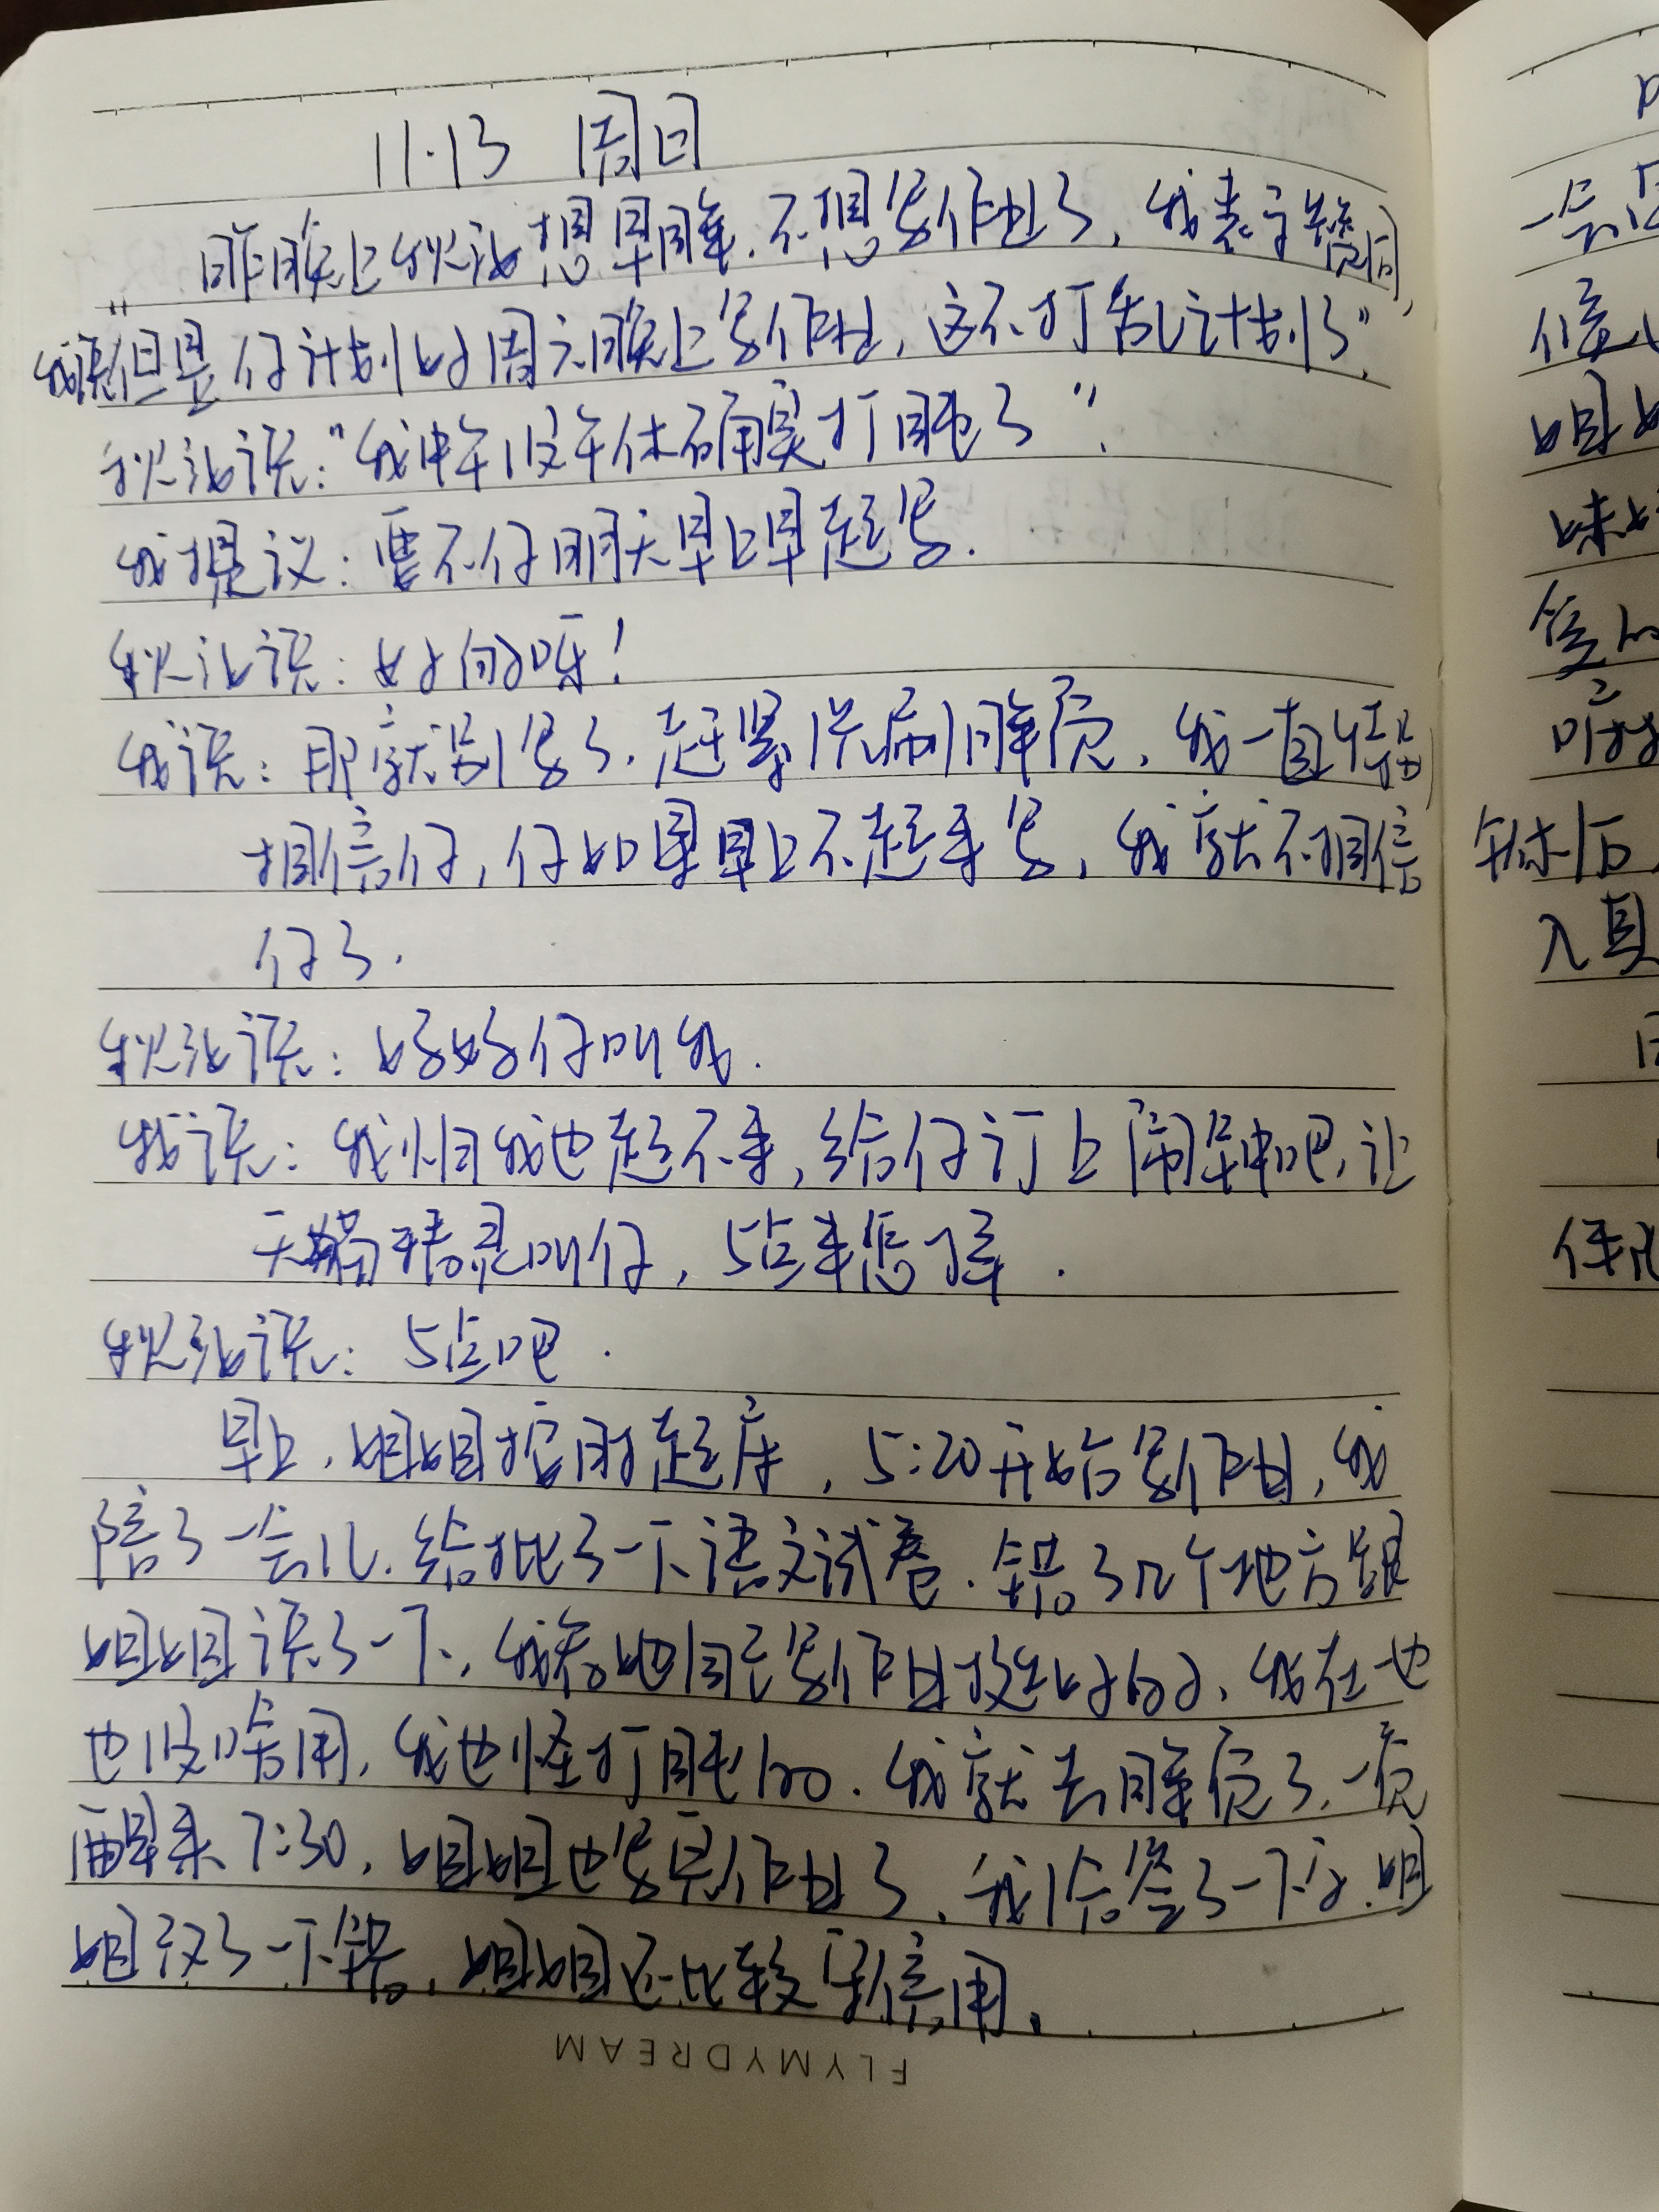 11.13 周日
昨晚上秋池想早睡,不想写作业了,我表示赞同,
我说"但是你计划好周六晚上写作业,这不打乱计划了"。
秋池说:"我中午没午休确实打盹了"。
我提议:要不你明天早上早起写.
秋池说:好的呀!
我说:那就别写了,赶紧洗刷睡觉,我一直
相信你,你如果早上不起来写,我就不相信
你了.
秋池说:好好你叫我.
我说:我怕我也起不来,给你订上闹钟吧,让
天猫精灵叫你,5点来怎么样.
秋池说:5点吧.
早上,姐姐按时起床,5:20开始写作业,我
陪了一会儿.给批了一下语文试卷.错了几个地方跟
姐姐说了一下,我看她自己写作业挺好的,我在也
也没啥用,我也怪打盹的.我就去睡觉了,一觉
醒来7:30,姐姐也写完作业了,我检查了一下,姐
姐改了一下错,姐姐还比较守信用.
FLYMYDREAM
一会
姐
妹
签